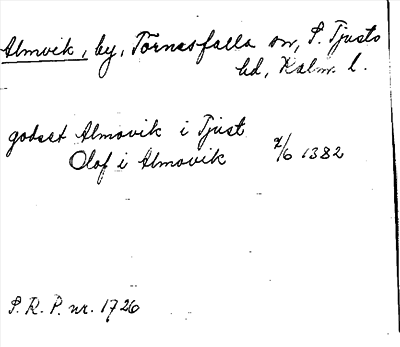 Almvik, by, Törnesfalla sn, S. Tjusts
hd, Kalm. l.
godset Almovik i Tjust
Olof i Almovik 2/6 1382
S. R. P. nr. 1726